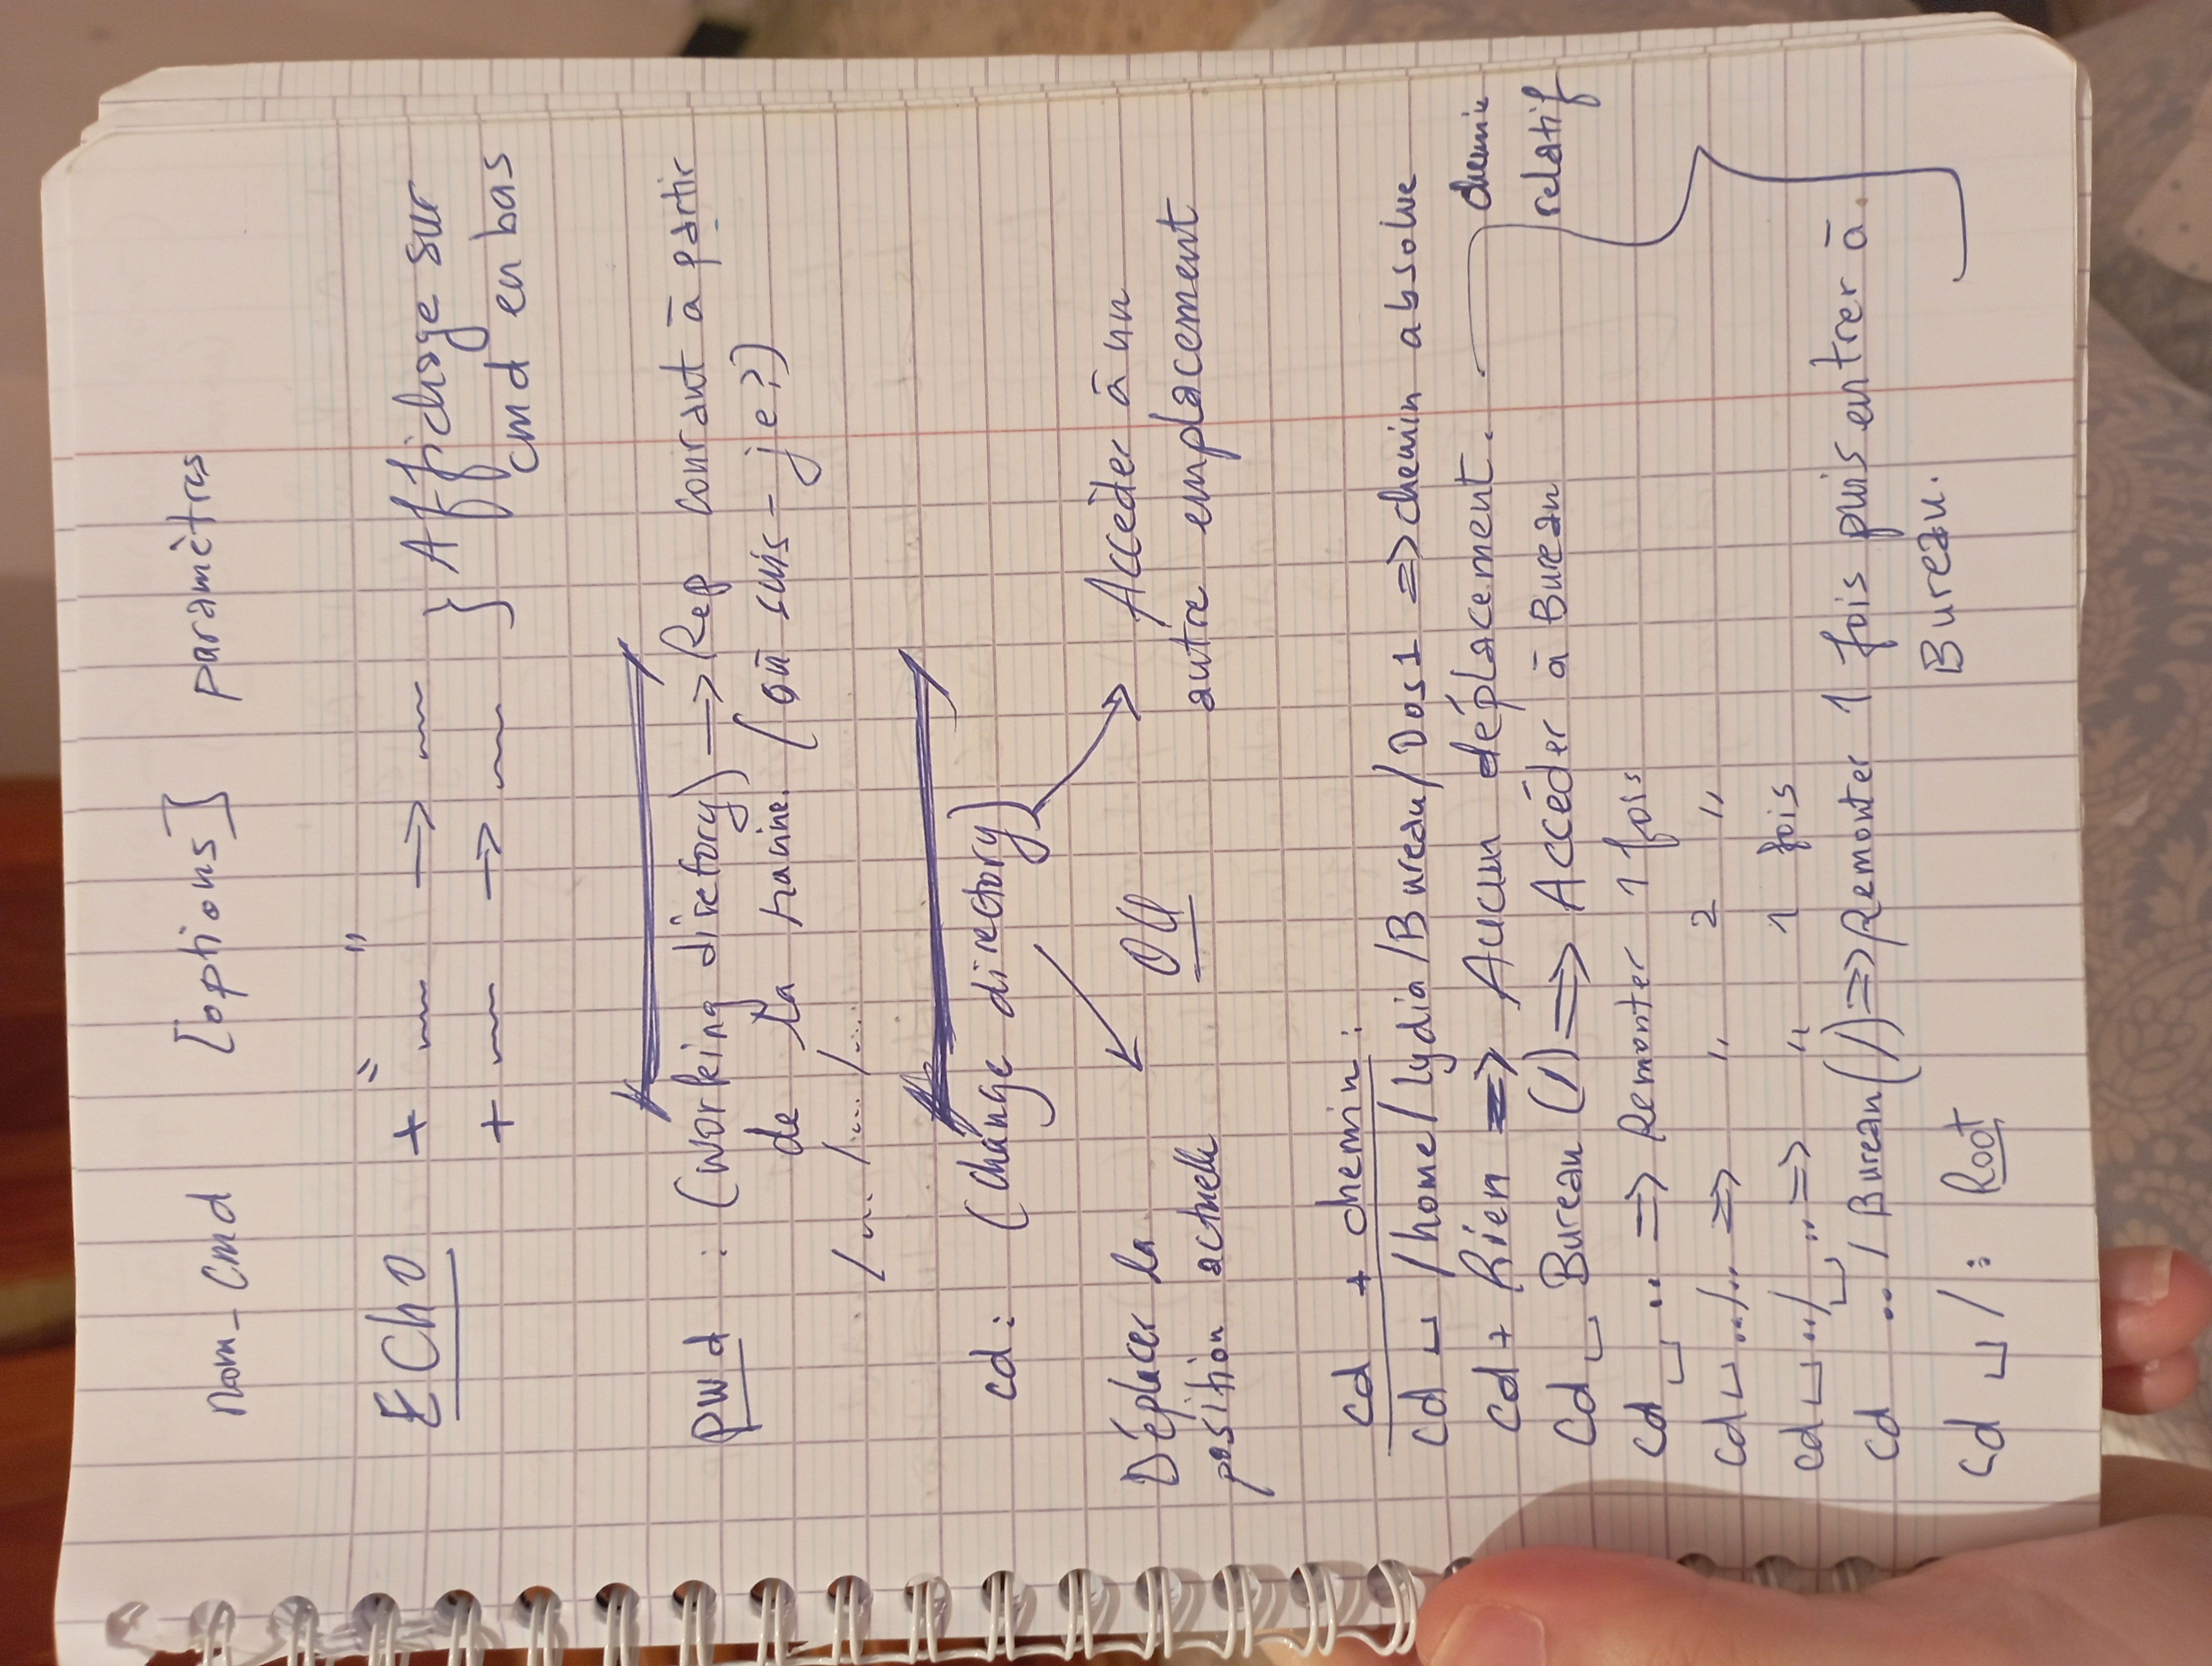 nom_cmd [options] paramètres
ECHO + " ~~ " → ~~
+ ~~ → ~~ } Affichage sur
cmd en bas
pwd : (working directory) → Rep courant à partir
de la racine. (où suis-je?)
/... /.... /....
cd : (change directory)
Déplacer la OU Accéder à un
position actuelle autre emplacement
cd + chemin :
cd ␣ /home/lydia/Bureau/Dos1 => chemin absolue
cd + Rien => Aucun déplacement. chemin
cd ␣ Bureau (/) => Accéder à Bureau relatif
cd ␣ .. => Remonter 1 fois
cd ␣ ../.. => " 2 "
cd ␣ ../ ␣ .. => " 1 fois
cd ../Bureau(/) => Remonter 1 fois puis entrer à
Bureau.
cd ␣ / : Root